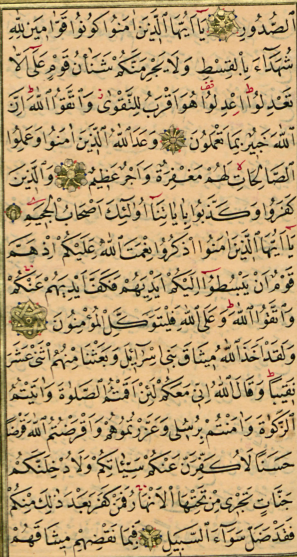 ٱلصُّدُورِ يَٓا اَيُّهَا ٱلَّذ۪ينَ اٰمَنُوا كُونُوا قَوَّام۪ينَ لِلّٰهِ
شُهَدَٓاءَ بِٱلْقِسْطِ وَلَا يَجْرِمَنَّكُمْ شَنَاٰنُ قَوْمٍ عَلٰٓى اَلَّا
تَعْدِلُوا اِعْدِلُوا هُوَ اَقْرَبُ لِلتَّقْوٰى وَٱتَّقُوا ٱللّٰهَ اِنَّ
ٱللّٰهَ خَب۪يرٌ بِمَا تَعْمَلُونَ وَعَدَ ٱللّٰهُ ٱلَّذ۪ينَ اٰمَنُوا وَعَمِلُوا
ٱلصَّالِحَاتِ لَهُمْ مَغْفِرَةٌ وَاَجْرٌ عَظ۪يمٌ وَٱلَّذ۪ينَ
كَفَرُوا وَكَذَّبُوا بِاٰيَاتِنَٓا اُولٰٓئِكَ اَصْحَابُ ٱلْجَح۪يمِ
يَٓا اَيُّهَا ٱلَّذ۪ينَ اٰمَنُوا ٱذْكُرُوا نِعْمَتَ ٱللّٰهِ عَلَيْكُمْ اِذْ هَمَّ
قَوْمٌ اَنْ يَبْسُطُٓوا اِلَيْكُمْ اَيْدِيَهُمْ فَكَفَّ اَيْدِيَهُمْ عَنْكُمْ
وَٱتَّقُوا ٱللّٰهَ وَعَلَى ٱللّٰهِ فَلْيَتَوَكَّلِ ٱلْمُؤْمِنُونَ
وَلَقَدْ اَخَذَ ٱللّٰهُ م۪يثَاقَ بَن۪ٓى اِسْرَٓائ۪لَ وَبَعَثْنَا مِنْهُمُ ٱثْنَىْ عَشَرَ
نَق۪يبًا وَقَالَ ٱللّٰهُ اِنّ۪ى مَعَكُمْ لَئِنْ اَقَمْتُمُ ٱلصَّلٰوةَ وَاٰتَيْتُمُ
ٱلزَّكٰوةَ وَاٰمَنْتُمْ بِرُسُل۪ى وَعَزَّرْتُمُوهُمْ وَاَقْرَضْتُمُ ٱللّٰهَ قَرْضًا
حَسَنًا لَاُكَفِّرَنَّ عَنْكُمْ سَيِّئَاتِكُمْ وَلَاُدْخِلَنَّكُمْ
جَنَّاتٍ تَجْر۪ى مِنْ تَحْتِهَا ٱلْاَنْهَارُ فَمَنْ كَفَرَ بَعْدَ ذٰلِكَ مِنْكُمْ
فَقَدْ ضَلَّ سَوَٓاءَ ٱلسَّب۪يلِ فَبِمَا نَقْضِهِمْ م۪يثَاقَهُمْ